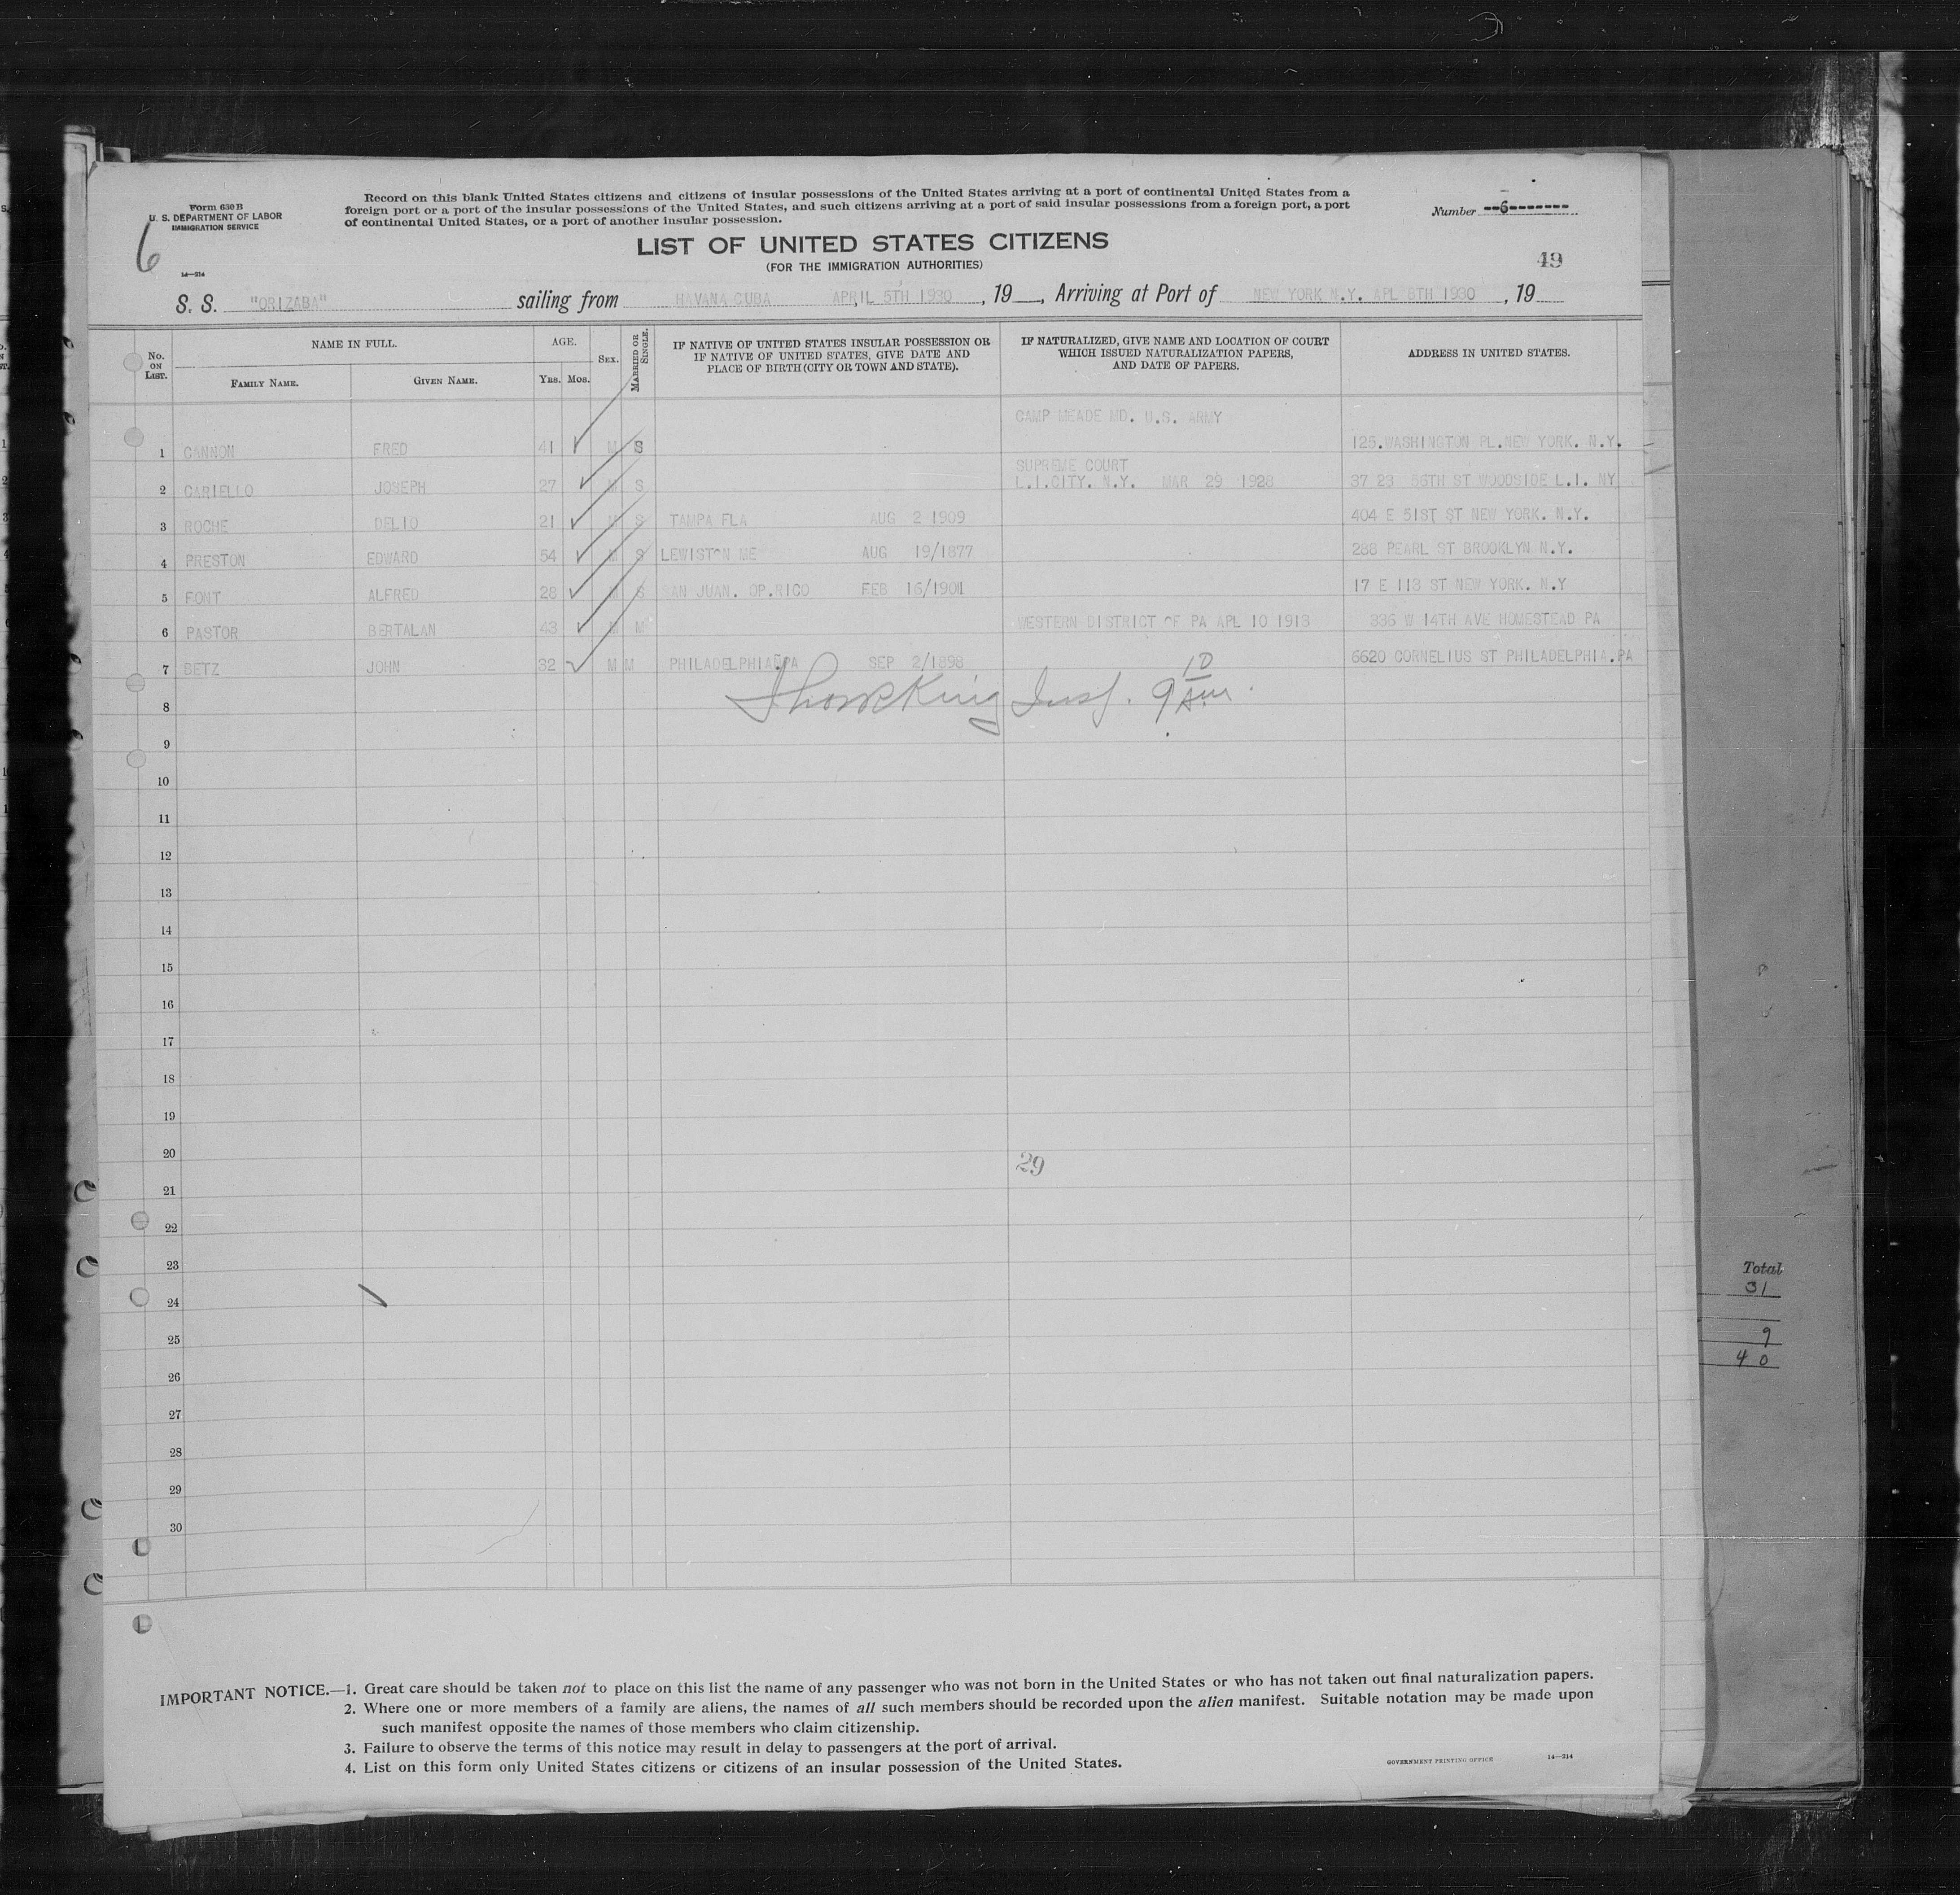 Form 630 B
U. S. DEPARTMENT OF LABOR
IMMIGRATION SERVICE
6
14—214
Record on this blank United States citizens and citizens of insular possessions of the United States arriving at a port of continental United States from a
foreign port or a port of the insular possessions of the United States, and such citizens arriving at a port of said insular possessions from a foreign port, a port
of continental United States, or a port of another insular possession.
Number --6-------
LIST OF UNITED STATES CITIZENS
(FOR THE IMMIGRATION AUTHORITIES)
49
S. S. "ORIZABA" sailing from HAVANA CUBA APRIL 5TH 1930, 19 , Arriving at Port of NEW YORK N.Y. APL 8TH 1930, 19
No. ON LIST. NAME IN FULL. FAMILY NAME. GIVEN NAME. AGE. YRS. MOS. SEX. MARRIED OR SINGLE. IF NATIVE OF UNITED STATES INSULAR POSSESSION OR IF NATIVE OF UNITED STATES, GIVE DATE AND PLACE OF BIRTH (CITY OR TOWN AND STATE). IF NATURALIZED, GIVE NAME AND LOCATION OF COURT WHICH ISSUED NATURALIZATION PAPERS, AND DATE OF PAPERS. ADDRESS IN UNITED STATES.
CAMP MEADE MD. U.S. ARMY
1 CANNON FRED 41 M S 125.WASHINGTON PL.NEW YORK. N.Y.
SUPREME COURT
2 CARIELLO JOSEPH 27 M S L.I.CITY. N.Y. MAR 29 1928 37 23 56TH ST WOODSIDE L.I. NY
3 ROCHE DELIO 21 M S TAMPA FLA AUG 2 1909 404 E 51ST ST NEW YORK. N.Y.
4 PRESTON EDWARD 54 M S LEWISTON ME AUG 19/1877 288 PEARL ST BROOKLYN N.Y.
5 FONT ALFRED 28 M S SAN JUAN. OP.RICO FEB 16/1901 17 E 113 ST NEW YORK. N.Y
6 PASTOR BERTALAN 43 M M WESTERN DISTRICT OF PA APL 10 1913 336 W 14TH AVE HOMESTEAD PA
7 BETZ JOHN 32 M M PHILADELPHIA PA SEP 2/1898 6620 CORNELIUS ST PHILADELPHIA.PA
King Insp. 9 10 Am.
8
9
10
11
12
13
14
15
16
17
18
19
20
29
21
22
23
24
25
26
27
28
29
30
Total
31
9
40
IMPORTANT NOTICE.—1. Great care should be taken not to place on this list the name of any passenger who was not born in the United States or who has not taken out final naturalization papers.
2. Where one or more members of a family are aliens, the names of all such members should be recorded upon the alien manifest. Suitable notation may be made upon
such manifest opposite the names of those members who claim citizenship.
3. Failure to observe the terms of this notice may result in delay to passengers at the port of arrival.
4. List on this form only United States citizens or citizens of an insular possession of the United States.
GOVERNMENT PRINTING OFFICE 14—214